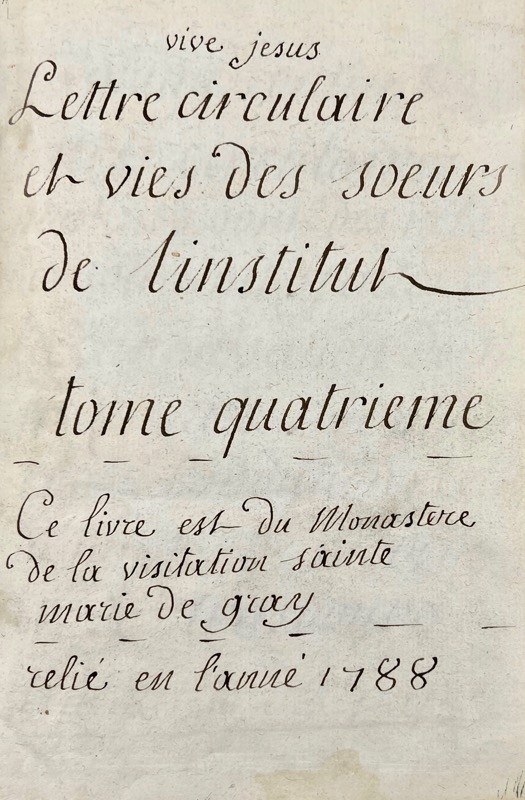 vive jesus
Lettre circulaire
et vies des soeurs
de l'institut
tome quatrieme
Ce livre est du Monastere
de la visitation sainte
marie de gray
relié en l'anné 1788